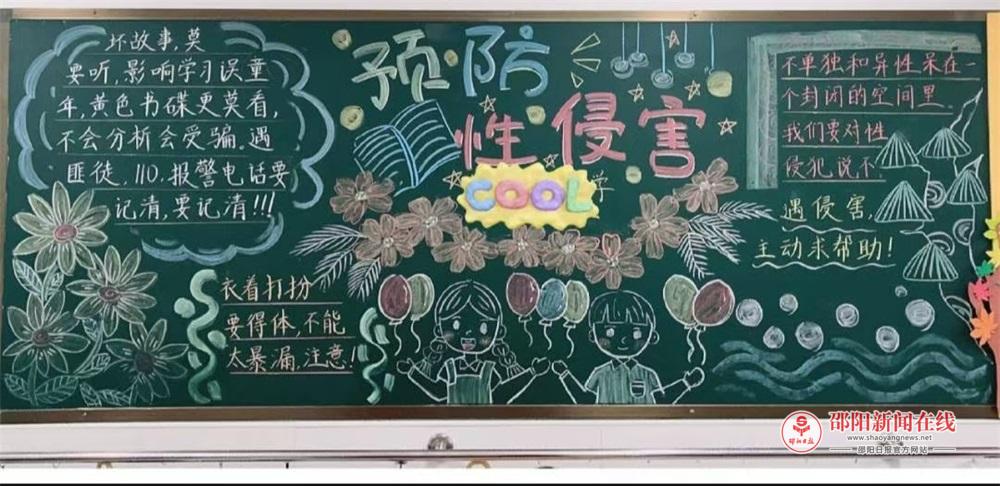 坏故事,莫
要听,影响学习误童
年,黄色书碟更莫看,
不会分析会受骗。遇
匪徒,110,报警电话要
记清,要记清!!!
预防
性侵害
COOL
学
衣着打扮
要得体,不能
太暴漏,注意!
不单独和异性呆在一
个封闭的空间里.
我们要对性
侵犯说不.
遇侵害,
主动求帮助!
邵阳日报
邵阳新闻在线
www.shaoyangnews.net
邵阳日报官方网站